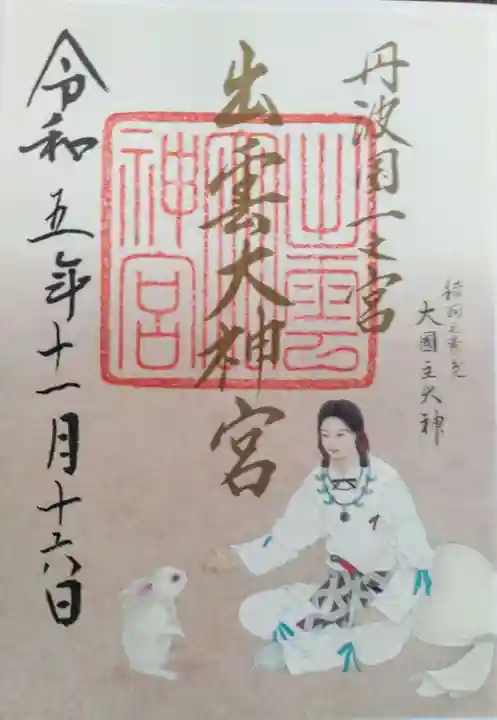 丹波国一之宮
大國主大神
出雲大神宮
出雲大神宮
令和五年十一月十六日